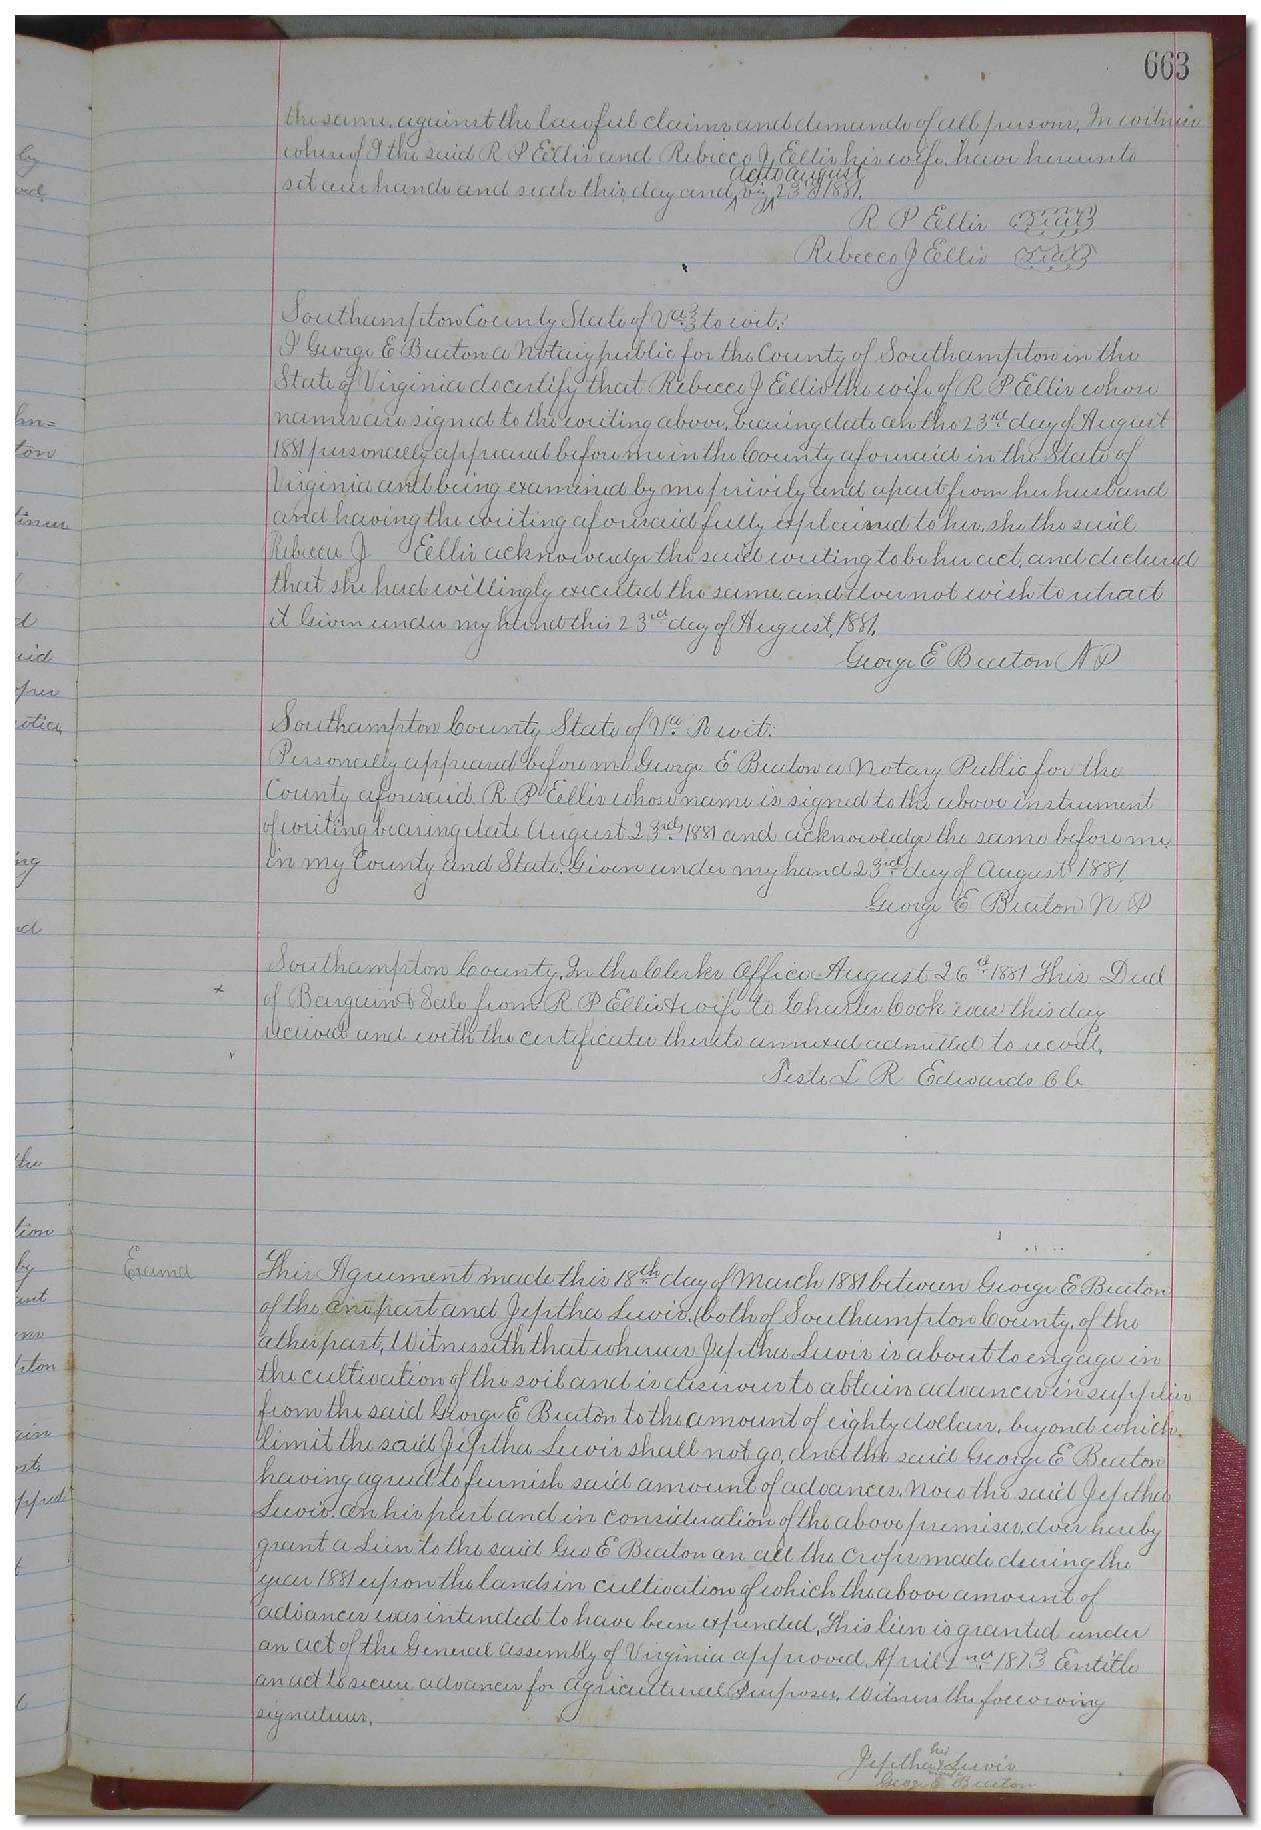 663
the same, against the lawful claims and demands of all persons, In witness
whereof I the said R P Ellis and Rebecca J Ellis his wife, have hereunto
date August
set our hands and seals this day and viz 23rd 1881.
R P Ellis Seal
Rebecca J Ellis Seal
Southampton County State of Va to wit:
I George E Beaton a Notary public for the County of Southampton in the
State of Virginia do certify that Rebecca J Ellis the wife of R P Ellis whose
names are signed to the writing above, bearing date on the 23rd day of August
1881 personally appeared before me in the County aforesaid in the State of
Virginia and being examined by me privily and apart from her husband
and having the writing aforesaid fully explained to her, she the said
Rebecca J Ellis acknowledge the said writing to be her act, and declared
that she had willingly executed the same and does not wish to retract
it Given under my hand this 23rd day of August, 1881.
George E Beaton N P
Southampton County State of Va. To wit:
Personally appeared before me George E Beaton a Notary Public for the
County aforesaid R P Ellis whose name is signed to the above instrument
of writing bearing date August 23rd 1881 and acknowledge the same before me
in my County and State. Given under my hand 23rd day of August 1881.
George E Beaton N P
Southampton County, In the Clerks Office August 26th 1881 This Deed
of Bargain & Sale from R P Ellis & wife to Charles Cook was this day
received and with the certificates thereto annexed admitted to record,
Teste L R Edwards Clk
Examd
This Agreement made this 18th day of March 1881 between George E Beaton
of the one part and Jeptha Lewis, (both of Southampton County, of the
other part, Witnesseth that whereas Jeptha Lewis is about to engage in
the cultivation of the soil and is desirous to obtain advances in supplies
from the said George E Beaton to the amount of eighty dollars, beyond which
limit the said Jeptha Lewis shall not go, and the said George E Beaton
having agreed to furnish said amount of advances. Now the said Jeptha
Lewis. on his part and in consideration of the above premises, does hereby
grant a Lien to the said Geo E Beaton on all the crops made during the
year 1881 upon the lands in cultivation of which the above amount of
advances was intended to have been expended, This lien is granted under
an act of the General assembly of Virginia approved April 2nd 1873 Entitle
an act to secure advances for Agricultural Purposes. Witness the following
signatures,
his
Jeptha x Lewis
George E Beaton